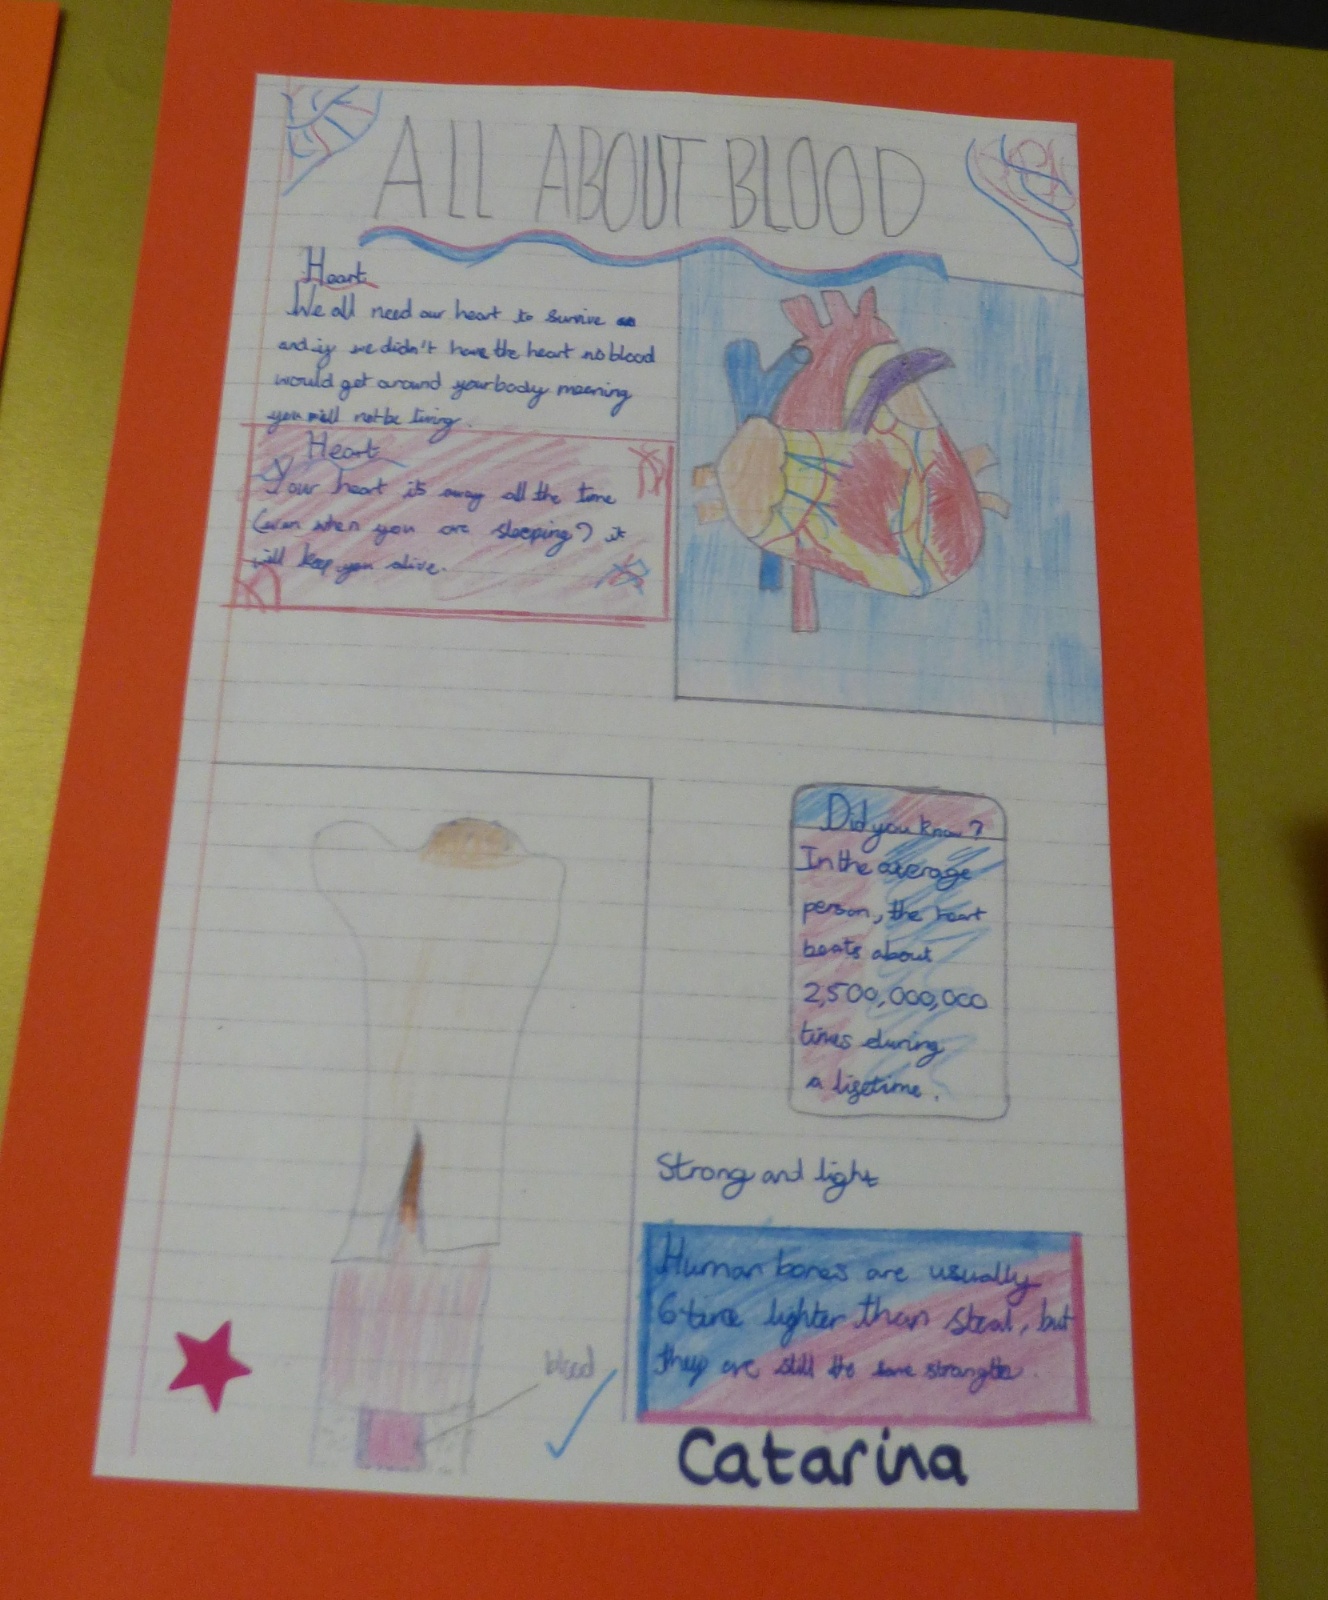 ALL ABOUT BLOOD
Heart
We all need our heart to survive
and if we didn't have the heart no blood
would get around your body meaning
you will not be living.
Heart
Your heart is away all the time
(even when you are sleeping) it
will keep you alive.
Did you know?
In the average
person, the heart
beats about
2,500,000,000
times during
a lifetime.
Strong and light
Human bones are usually
6 time lighter than steal, but
they are still the same strangth.
blood
Catarina